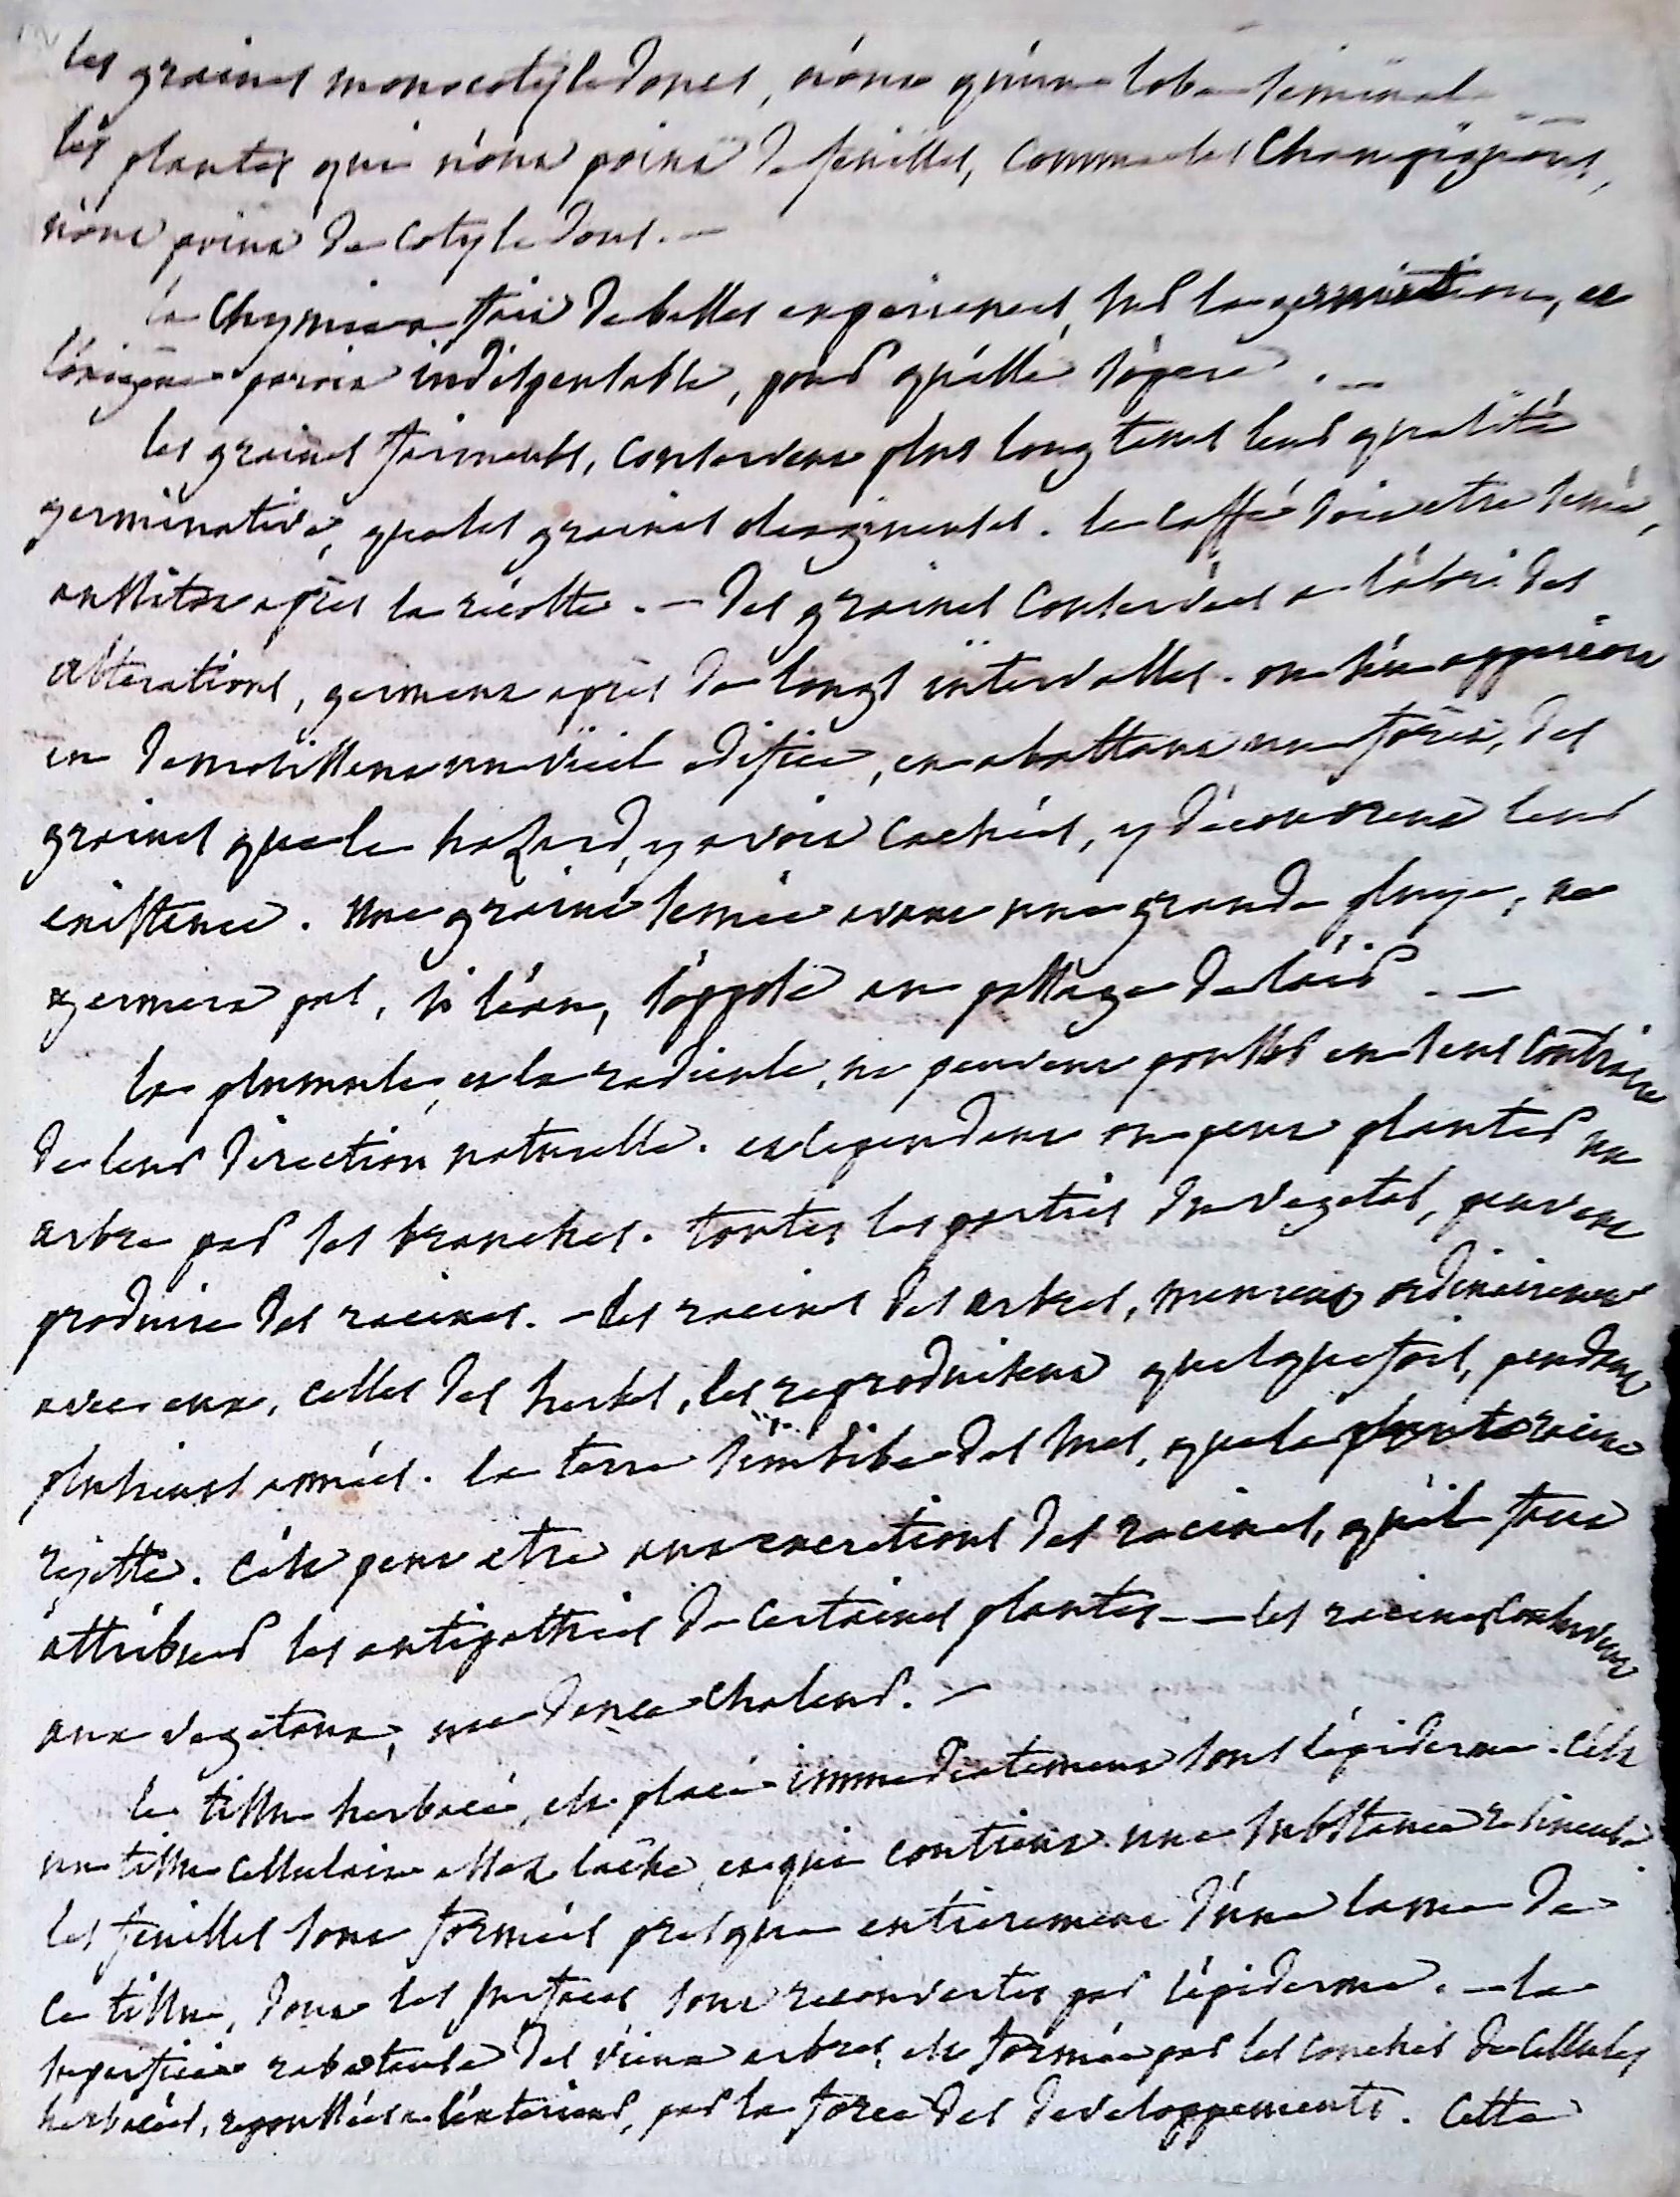 les graines monocotyledones, n'ont qu'un lobe seminal
les plantes qui n'ont point de feuilles, comme les Champignons,
n'ont point de cotyledons. —
la Chymie a fait de belles experiences, sur la germination, et
l'oxigene paroit indispensable, pour qu'elle s'opere. —
les graines farineuses, conservent plus longtems leur qualité
germinative, que les graines oleagineuses. le caffé doit etre semé,
aussitot après la récolte. — des graines conservées a l'abri des
alterations, germent après de longs intervalles. on s'en apperçoit
en demolissant un vieil edifice, en abattant une forêt, des
graines que le hazard, y avoit cachées, y découvrent leur
existence. une graine semée avant une grande pluye, ne
germera pas, si l'eau, s'oppose au passage de l'air. —
la plumule, et la radicule, ne peuvent pousser en sens contraire
de leur direction naturelle. et cependant on peut planter un
arbre par ses branches. toutes les parties du vegetal, peuvent
produire des racines. — les racines des arbres, meurent ordinairement
avec eux, celles des herbes, les reproduisent quelquefois, pendant
plusieurs années. la terre s'imbibe des sucs, que la plante racine
rejette. c'est peut etre aux excretions des racines, qu'il faut
attribuer les antipathies de certaines plantes — les racines conservent
aux vegetaux, une douce chaleur. —
le tissu herbacé, est placé immediatement sous l'epiderme. c'est
un tissu cellulaire assez lache, et qui contient une substance resineuse.
les feuilles sont formées presque entierement d'une lame de
ce tissu, dont les surfaces, sont recouvertes par l'epiderme. — la
superficie raboteuse des vieux arbres, est formée par les couches de cellules
herbacées, repoussées a l'exterieur, par la force des developpements. Cette